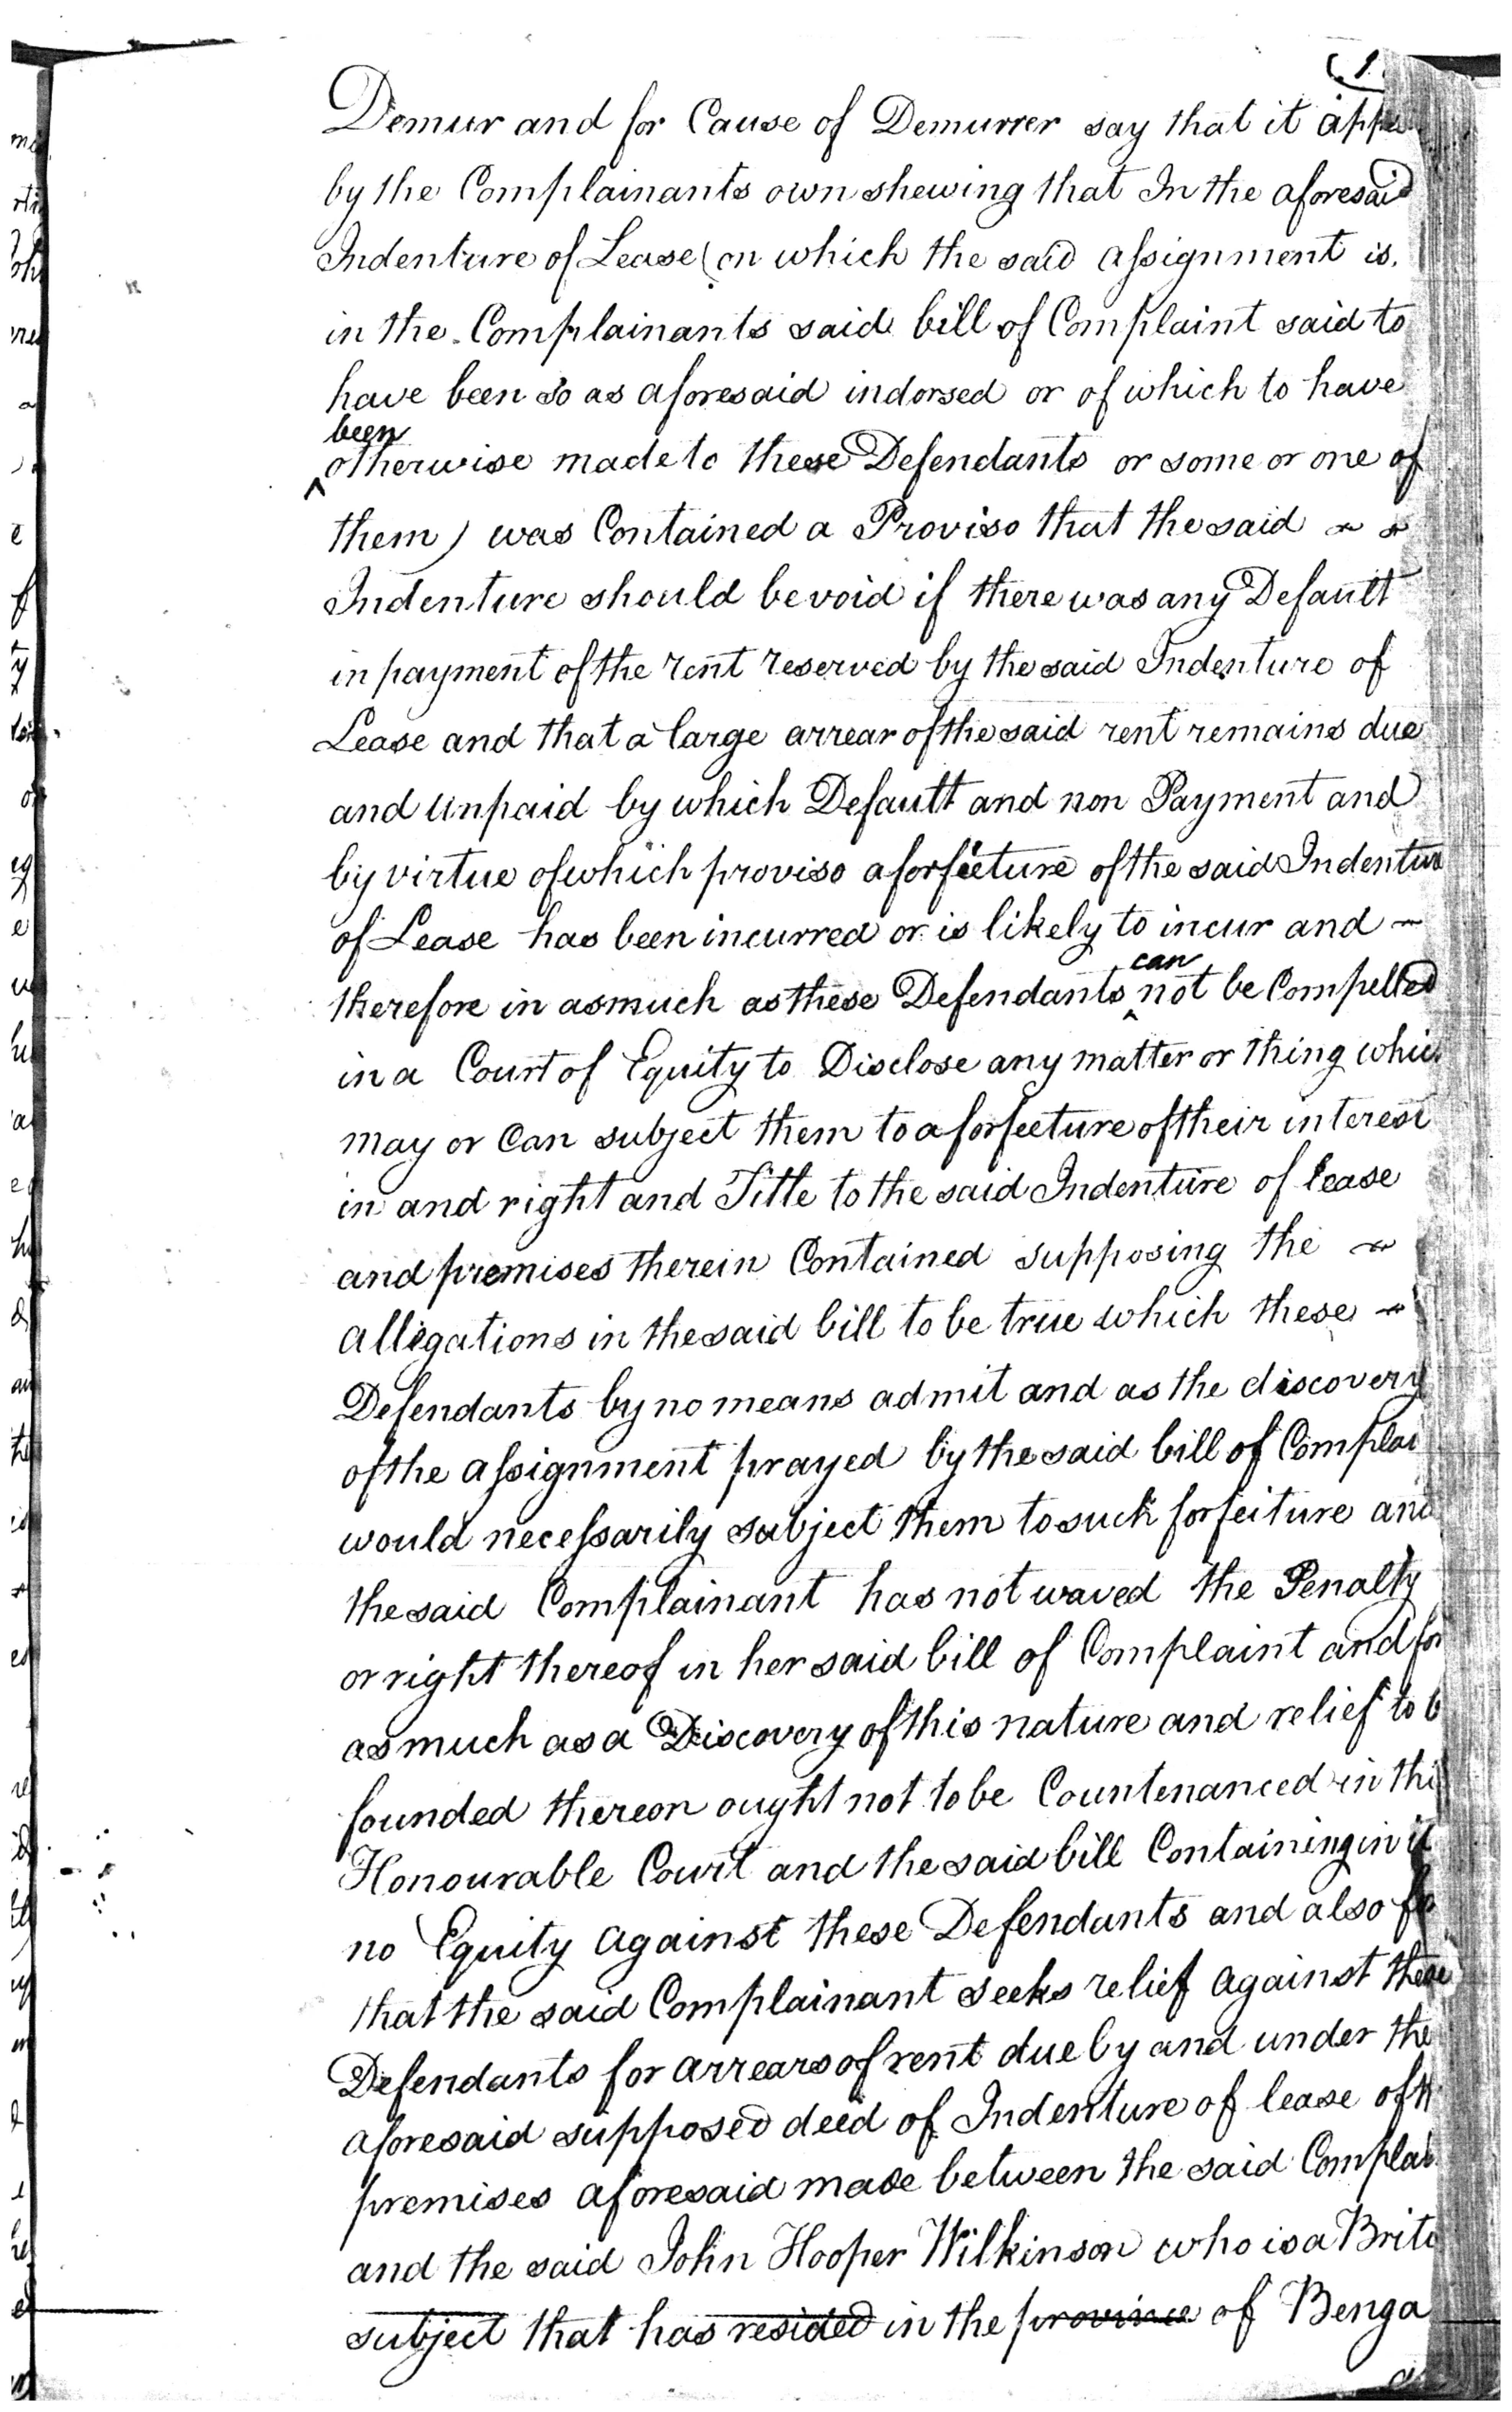 (1
Demur and for Cause of Demurrer say that it appe
by the Complainants own shewing that In the aforesaid
Indenture of Lease (on which the said assignment is.
in the Complainants said bill of Complaint said to
have been so as aforesaid indorsed or of which to have
been
^ otherwise made to these Defendants or some or one of
them) was Contained a Proviso that the said ~ ~
Indenture should be void if there was any Default
in payment of the rent reserved by the said Indenture of
Lease and that a large arrear of the said rent remains due
and unpaid by which Default and non Payment and
by virtue of which proviso a forfeeture of the said Indenture
of Lease has been incurred or is likely to incur and ~
can
therefore in asmuch as these Defendants ^ not be Compelled
in a Court of Equity to Disclose any matter or thing whic
may or Can subject them to a forfeeture of their interest
in and right and Title to the said Indenture of lease
and premises therein Contained supposing the ~
allegations in the said bill to be true which these ~
Defendants by no means admit and as the discovery
of the assignment prayed by the said bill of Complai
would necessarily subject them to such forfeiture and
the said Complainant has not waved the Penalty
or right thereof in her said bill of Complaint and for
as much as a Discovery of this nature and relief to b
founded thereon ought not to be Countenanced in thi
Honourable Court and the said bill Containing in it
no Equity against these Defendants and also fo
that the said Complainant seeks relief against these
Defendants for arrears of rent due by and under the
aforesaid supposed deed of Indenture of lease of th
premises aforesaid made between the said Complai
and the said John Hooper Wilkinson who is a Briti
subject that has resided in the province of Benga